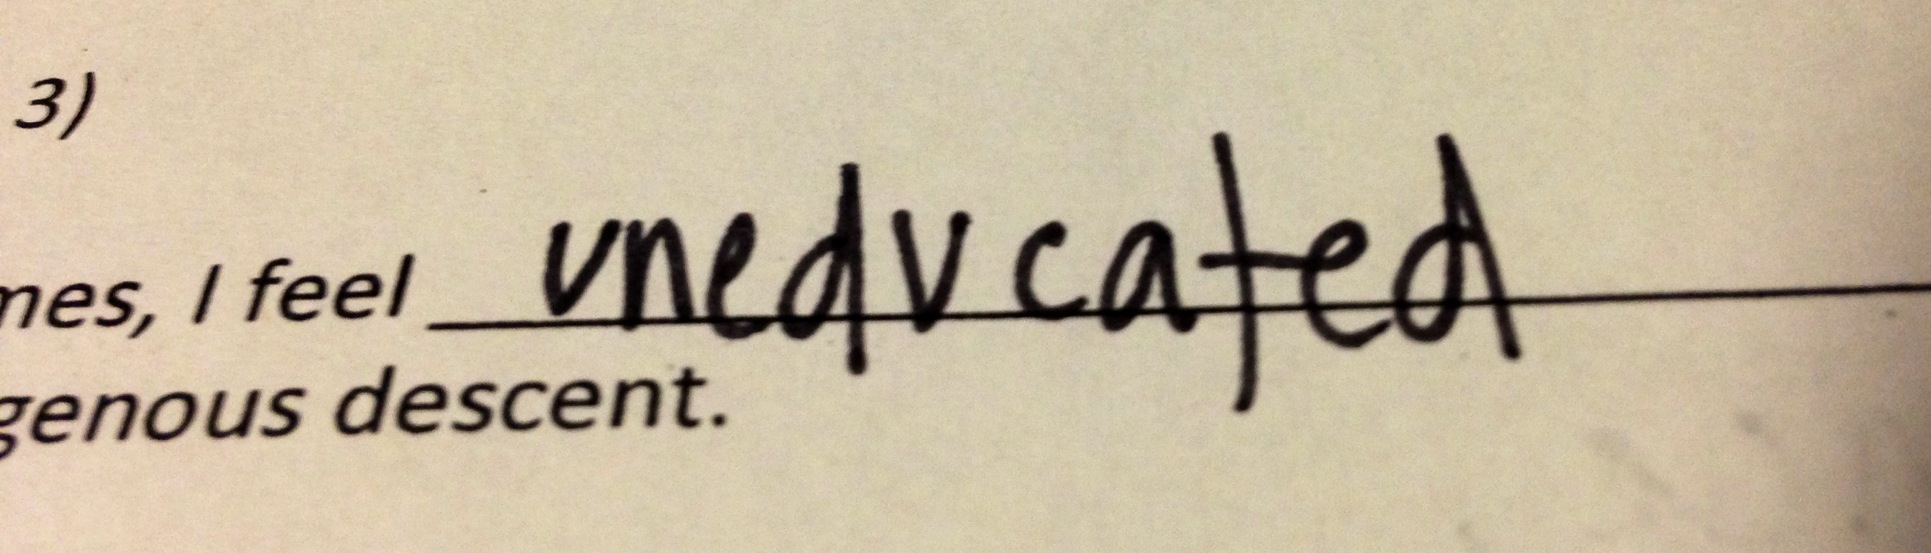 3)
mes, I feel uneducated
genous descent.